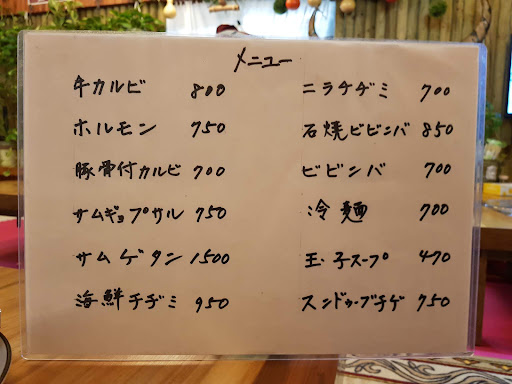 メニュー
牛カルビ 800
ホルモン 750
豚骨付カルビ 700
サムギョプサル 750
サムゲタン 1500
海鮮チヂミ 950
ニラチヂミ 700
石焼ビビンバ 850
ビビンバ 700
冷麺 700
玉子スープ 470
スンドゥーブチゲ 750